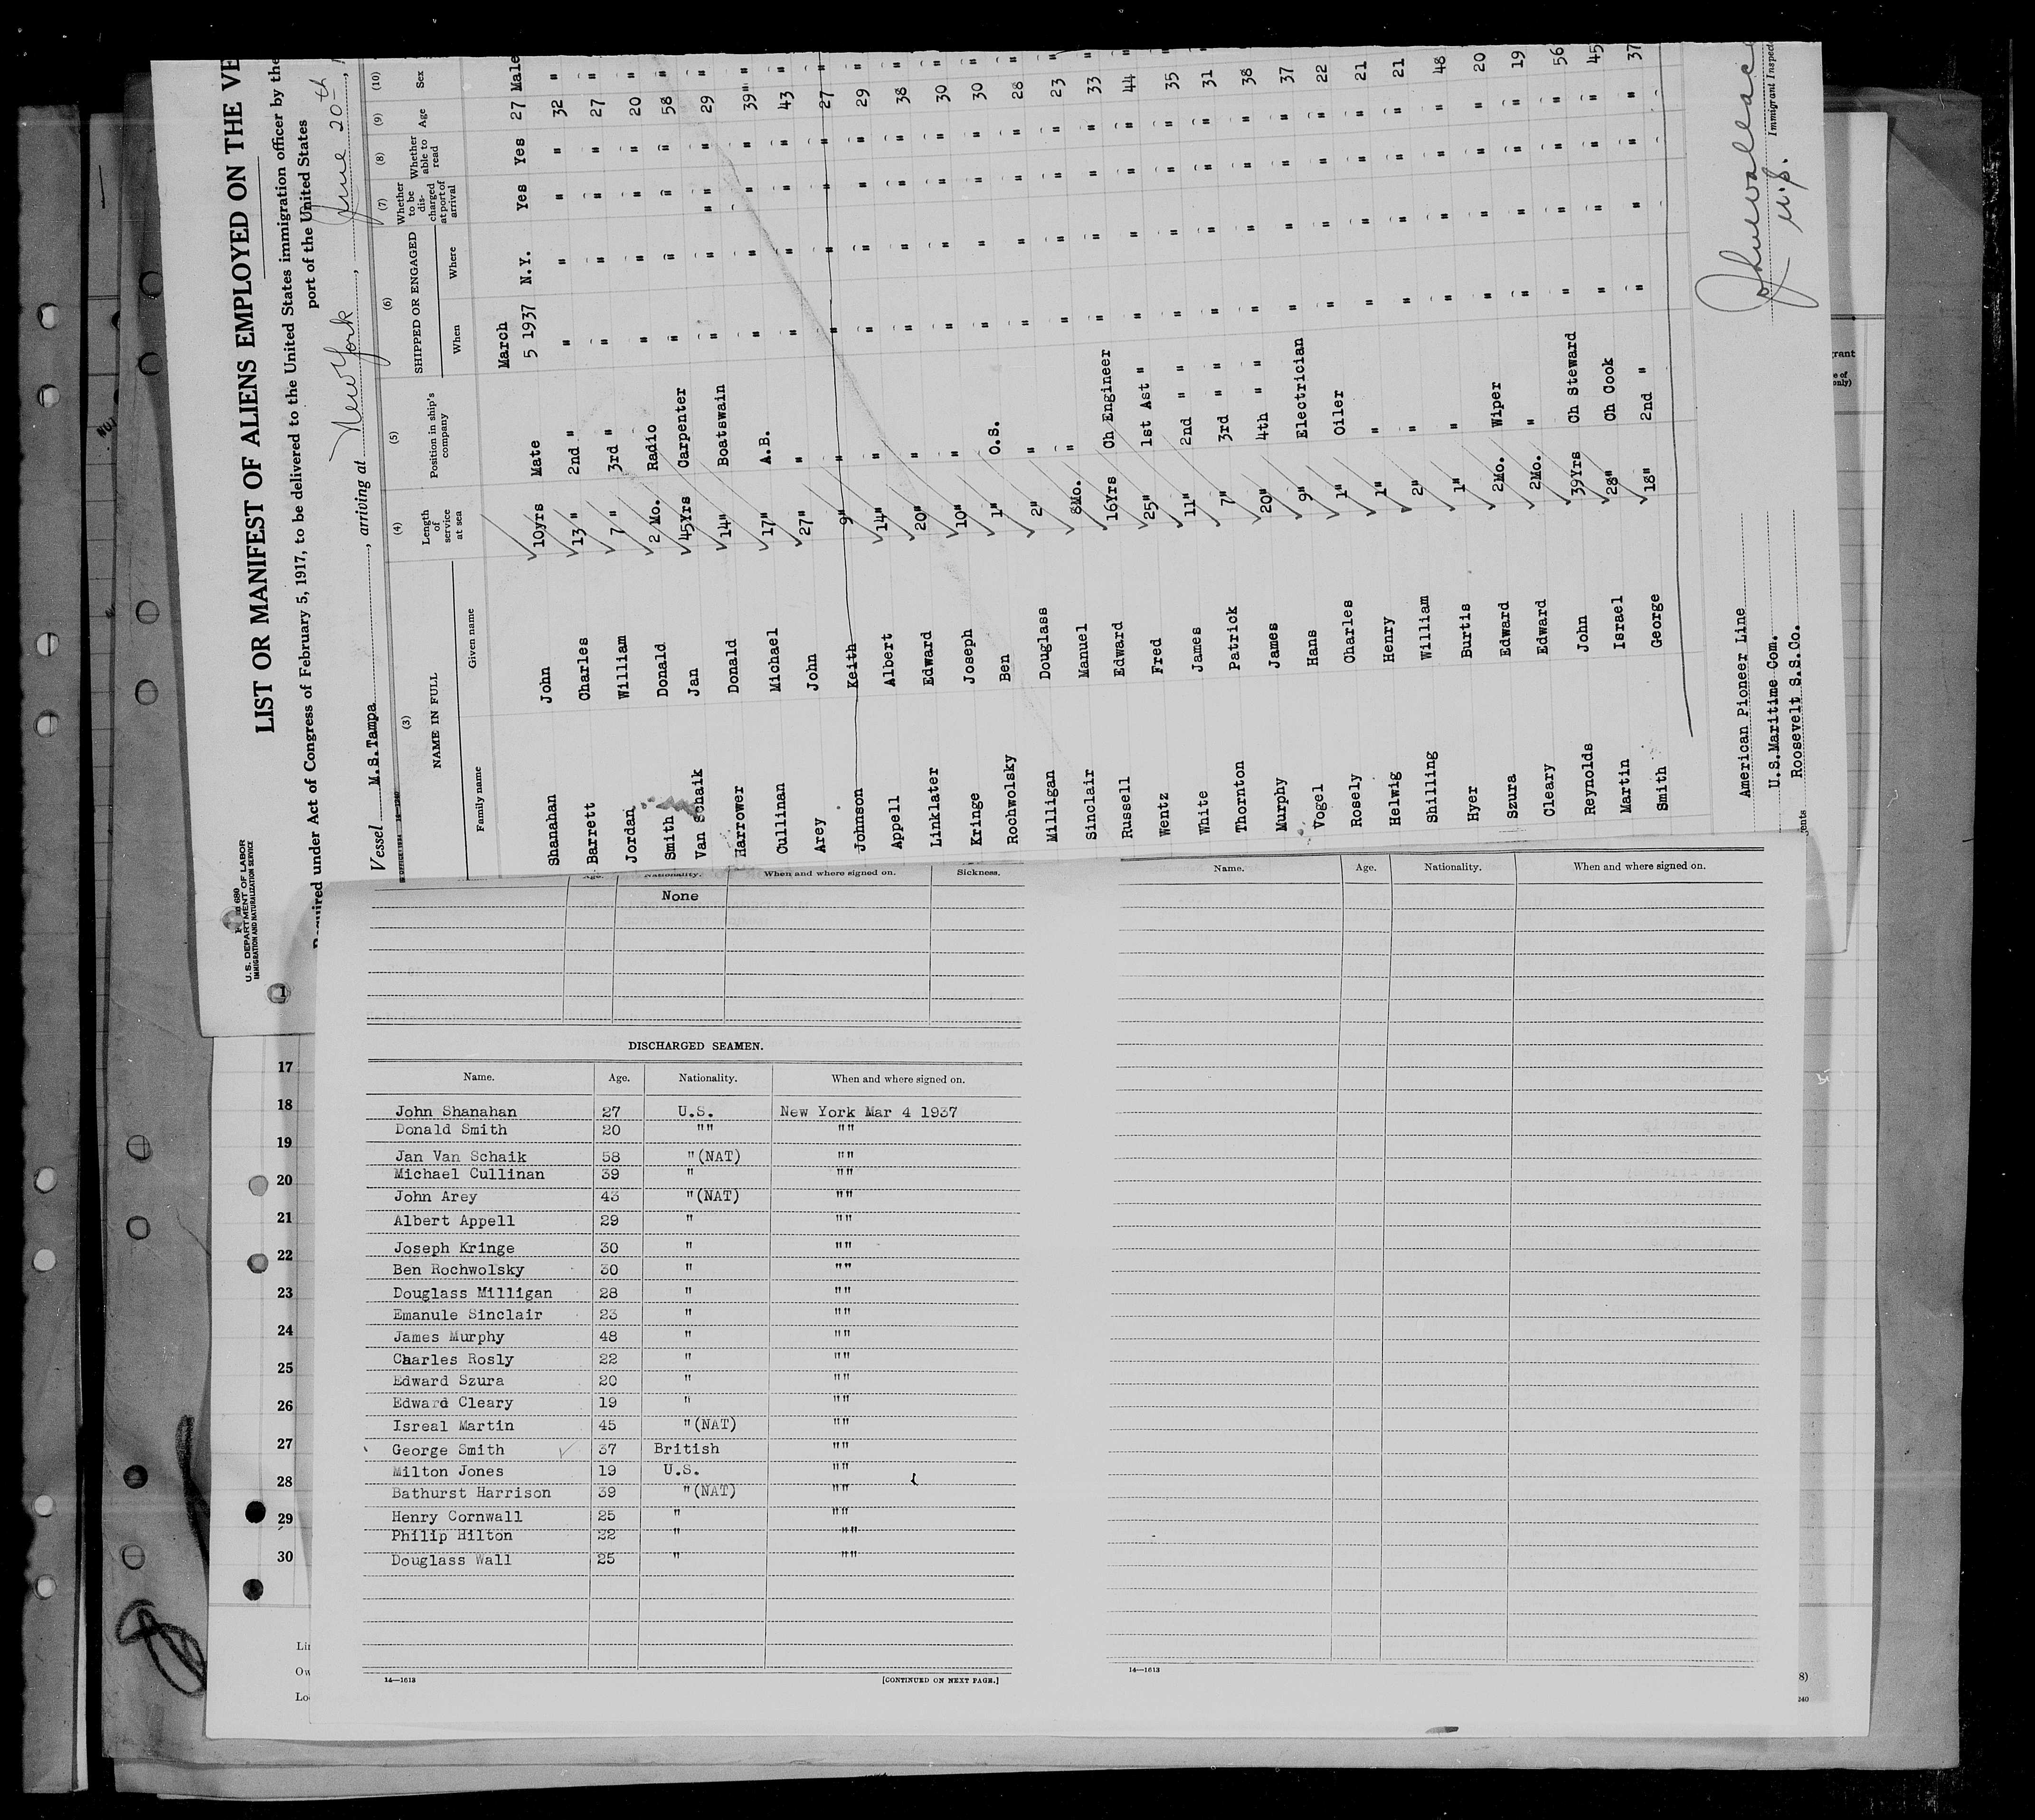 Form 680
U.S. DEPARTMENT OF LABOR
IMMIGRATION AND NATURALIZATION SERVICE
LIST OR MANIFEST OF ALIENS EMPLOYED ON THE VE
Required under Act of Congress of February 5, 1917, to be delivered to the United States immigration officer by the
port of the United States
Vessel M.S.Tampa, arriving at New York, June 20th, 1
(3) (4) (5) (6) (7) (8) (9) (10)
NAME IN FULL Length of service at sea Position in ship's company SHIPPED OR ENGAGED Whether to be discharged at port of arrival Whether able to read Age Sex
Family name Given name When Where
Shanahan John 10yrs Mate March 5 1937 N.Y. Yes Yes 27 Male
Barrett Charles 13 " 2nd " " " " " 32 "
Jordan William 7 " 3rd " " " " " 27 "
Smith Donald 2 Mo. Radio " " " " 20 "
Van Schaik Jan 45Yrs Carpenter " " " " 58 "
Harrower Donald 14" Boatswain " " " " 29 "
Cullinan Michael 17" A.B. " " " " 39 "
Arey John 27" " " " " " 43 "
Johnson Keith 9" " " " " " 27 "
Appell Albert 14" " " " " " 29 "
Linklater Edward 20" " " " " " 38 "
Kringe Joseph 10" " " " " " 30 "
Rochwolsky Ben 1" O.S. " " " " 30 "
Milligan Douglass 2" " " " " " 28 "
Sinclair Manuel 8Mo. " " " " " 23 "
Russell Edward 16Yrs Ch Engineer " " " " 33 "
Wentz Fred 25" 1st Ast " " " " " 44 "
White James 11" 2nd " " " " " " 35 "
Thornton Patrick 7" 3rd " " " " " " 31 "
Murphy James 20" 4th " " " " " " 38
Vogel Hans 9" Electrician " " " " 37
Rosely Charles 1" Oiler " " " " 22
Helwig Henry 1" " " " " " 21
Shilling William 2" " " " " " 21
Hyer Burtis 1" " " " " " 48
Szura Edward 2Mo. Wiper " " " " 20
Cleary Edward 2Mo. " " " " " 19
Reynolds John 39Yrs Ch Steward " " " " 56
Martin Israel 28" Ch Cook " " " " 45
Smith George 18" 2nd " " " " " 37
American Pioneer Line
U.S.Maritime Com.
Roosevelt S.S.Co.
Immigrant Inspec
Age. Nationality. When and where signed on. Sickness.
None
DISCHARGED SEAMEN.
Name. Age. Nationality. When and where signed on.
John Shanahan 27 U.S. New York Mar 4 1937
Donald Smith 20 "" ""
Jan Van Schaik 58 "(NAT) ""
Michael Cullinan 39 " ""
John Arey 43 "(NAT) ""
Albert Appell 29 " ""
Joseph Kringe 30 " ""
Ben Rochwolsky 30 " ""
Douglass Milligan 28 " ""
Emanule Sinclair 23 " ""
James Murphy 48 " ""
Charles Rosly 22 " ""
Edward Szura 20 " ""
Edward Cleary 19 " ""
Isreal Martin 45 "(NAT) ""
George Smith 37 British ""
Milton Jones 19 U.S. ""
Bathurst Harrison 39 "(NAT) ""
Henry Cornwall 25 " ""
Philip Hilton 22 " ""
Douglass Wall 25 " ""
14—1613 [CONTINUED ON NEXT PAGE.]
Name. Age. Nationality. When and where signed on.
14—1613
1
17
18
19
20
21
22
23
24
25
26
27
28
29
30
Li
Ow
Lo
rant
e of
only)
8)
240